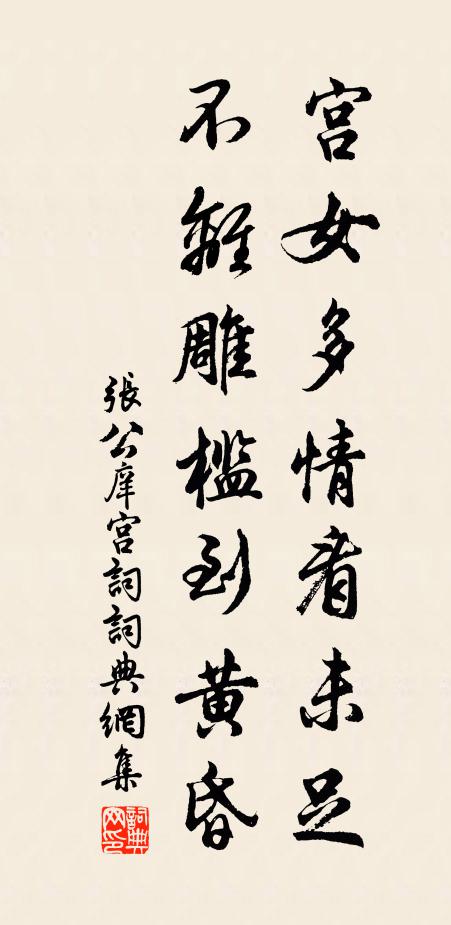 宮女多情看未足
不離雕檻到黃昏
張公庠宮詞詞典網集
詞典网印